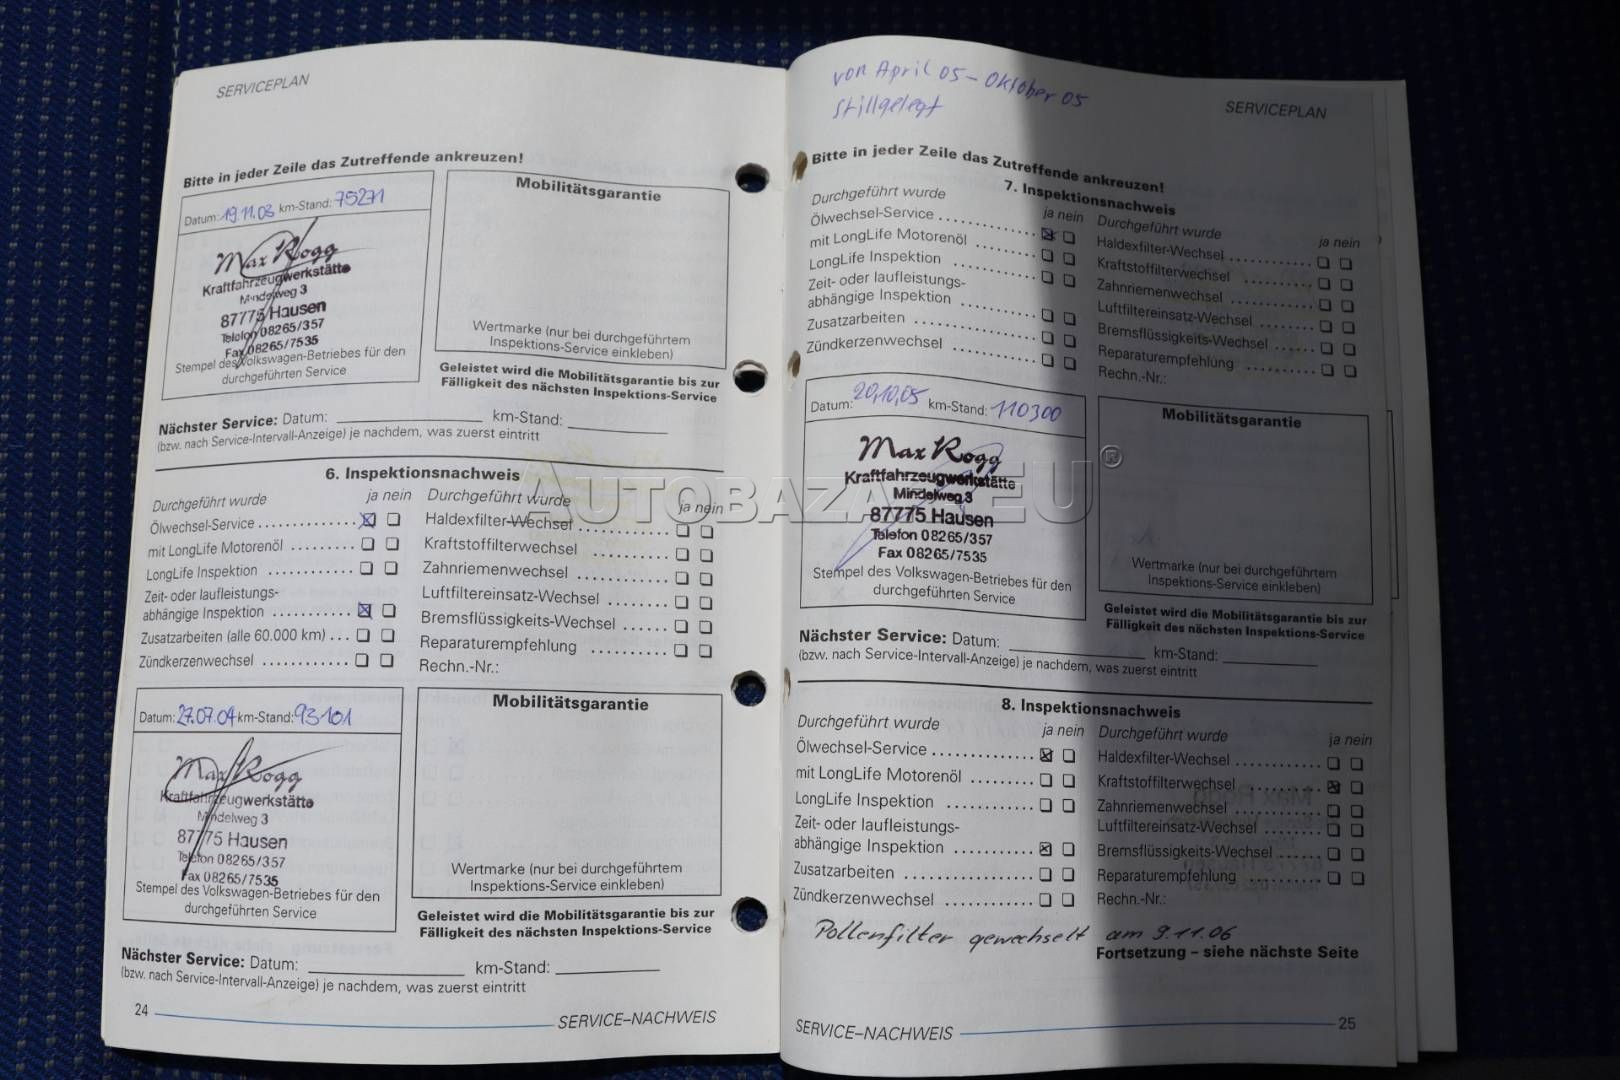 SERVICEPLAN
Bitte in jeder Zeile das Zutreffende ankreuzen!
Datum: 19.11.03 km-Stand: 75271
Max Rogg
Kraftfahrzeugwerkstätte
Mindelweg 3
87775 Hausen
Telefon 08265/357
Fax 08265/7535
Stempel des Volkswagen-Betriebes für den
durchgeführten Service
Mobilitätsgarantie
Wertmarke (nur bei durchgeführtem
Inspektions-Service einkleben)
Geleistet wird die Mobilitätsgarantie bis zur
Fälligkeit des nächsten Inspektions-Service
Nächster Service: Datum: km-Stand:
(bzw. nach Service-Intervall-Anzeige) je nachdem, was zuerst eintritt
6. Inspektionsnachweis
Durchgeführt wurde ja nein
Ölwechsel-Service
mit LongLife Motorenöl
LongLife Inspektion
Zeit- oder laufleistungs-
abhängige Inspektion
Zusatzarbeiten (alle 60.000 km)
Zündkerzenwechsel
Durchgeführt wurde ja nein
Haldexfilter-Wechsel
Kraftstoffilterwechsel
Zahnriemenwechsel
Luftfiltereinsatz-Wechsel
Bremsflüssigkeits-Wechsel
Reparaturempfehlung
Rechn.-Nr.:
Datum: 27.07.04 km-Stand: 93101
Max Rogg
Kraftfahrzeugwerkstätte
Mindelweg 3
87775 Hausen
Telefon 08265/357
Fax 08265/7535
Stempel des Volkswagen-Betriebes für den
durchgeführten Service
Mobilitätsgarantie
Wertmarke (nur bei durchgeführtem
Inspektions-Service einkleben)
Geleistet wird die Mobilitätsgarantie bis zur
Fälligkeit des nächsten Inspektions-Service
Nächster Service: Datum: km-Stand:
(bzw. nach Service-Intervall-Anzeige) je nachdem, was zuerst eintritt
24
SERVICE–NACHWEIS
von April 05 – Oktober 05
stillgelegt
SERVICEPLAN
Bitte in jeder Zeile das Zutreffende ankreuzen!
7. Inspektionsnachweis
Durchgeführt wurde ja nein
Ölwechsel-Service
mit LongLife Motorenöl
LongLife Inspektion
Zeit- oder laufleistungs-
abhängige Inspektion
Zusatzarbeiten
Zündkerzenwechsel
Durchgeführt wurde ja nein
Haldexfilter-Wechsel
Kraftstoffilterwechsel
Zahnriemenwechsel
Luftfiltereinsatz-Wechsel
Bremsflüssigkeits-Wechsel
Reparaturempfehlung
Rechn.-Nr.:
Datum: 20.10.05 km-Stand: 110300
Max Rogg
Kraftfahrzeugwerkstätte
Mindelweg 3
87775 Hausen
Telefon 08265/357
Fax 08265/7535
Stempel des Volkswagen-Betriebes für den
durchgeführten Service
Mobilitätsgarantie
Wertmarke (nur bei durchgeführtem
Inspektions-Service einkleben)
Geleistet wird die Mobilitätsgarantie bis zur
Fälligkeit des nächsten Inspektions-Service
Nächster Service: Datum: km-Stand:
(bzw. nach Service-Intervall-Anzeige) je nachdem, was zuerst eintritt
8. Inspektionsnachweis
Durchgeführt wurde ja nein
Ölwechsel-Service
mit LongLife Motorenöl
LongLife Inspektion
Zeit- oder laufleistungs-
abhängige Inspektion
Zusatzarbeiten
Zündkerzenwechsel
Durchgeführt wurde ja nein
Haldexfilter-Wechsel
Kraftstoffilterwechsel
Zahnriemenwechsel
Luftfiltereinsatz-Wechsel
Bremsflüssigkeits-Wechsel
Reparaturempfehlung
Rechn.-Nr.:
Pollenfilter gewechselt am 9.11.06
Fortsetzung – siehe nächste Seite
SERVICE–NACHWEIS
25
AUTOBAZAR.EU®